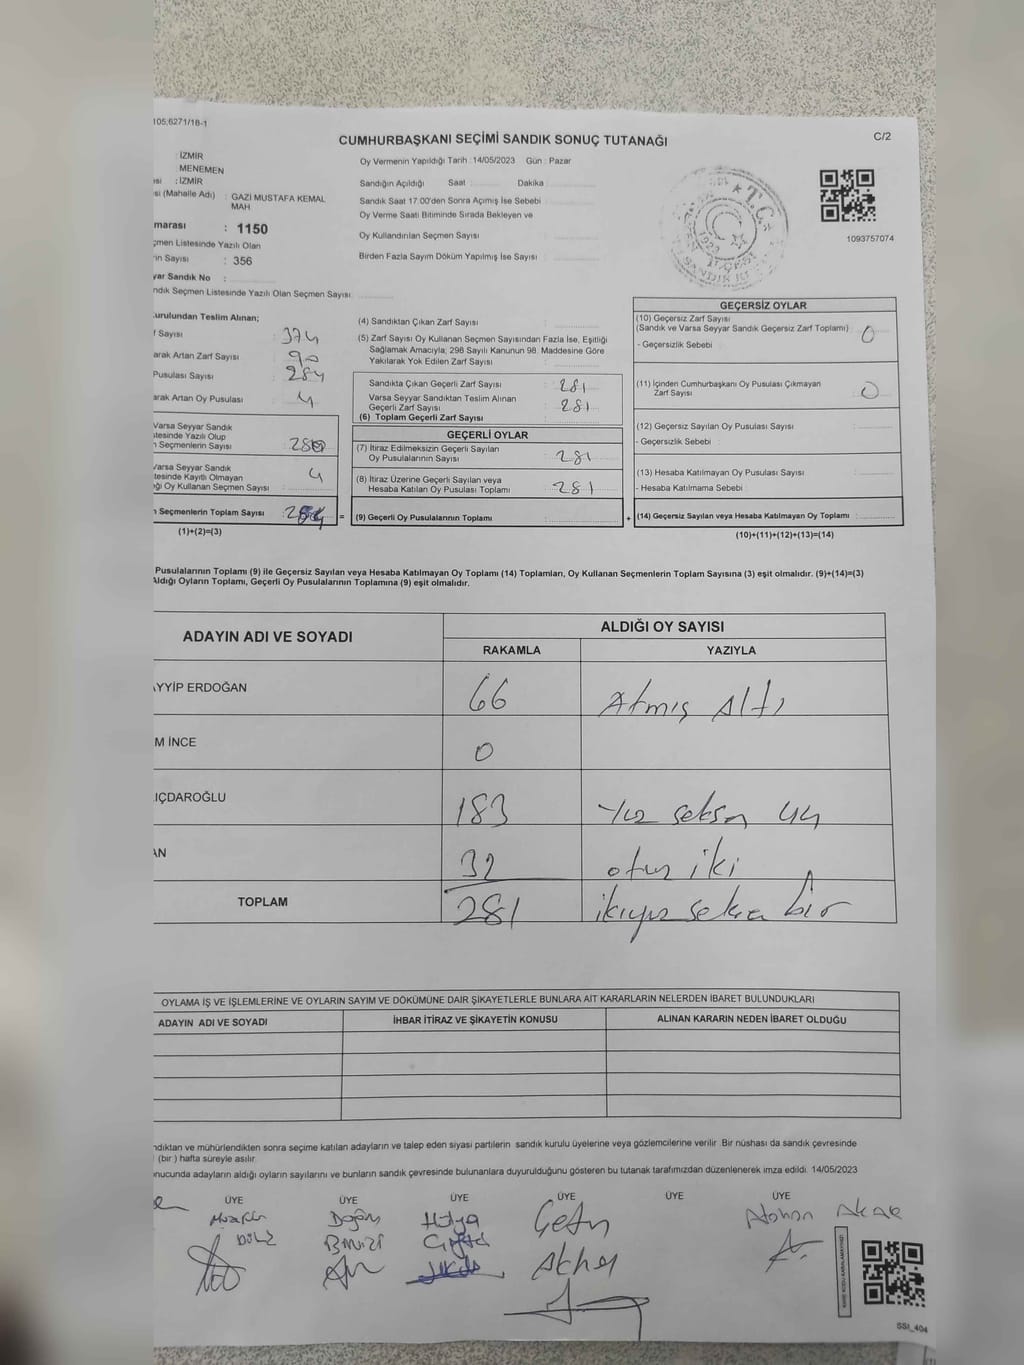 105;6271/18-1
CUMHURBAŞKANI SEÇİMİ SANDIK SONUÇ TUTANAĞI
C/2
: İZMİR
: MENEMEN
: İZMİR
si (Mahalle Adı) : GAZİ MUSTAFA KEMAL
MAH
marası : 1150
çmen Listesinde Yazılı Olan
ın Sayısı : 356
yar Sandık No :
ndık Seçmen Listesinde Yazılı Olan Seçmen Sayısı:
Oy Vermenin Yapıldığı Tarih : 14/05/2023 Gün : Pazar
Sandığın Açıldığı Saat : Dakika :
Sandık Saat 17:00'den Sonra Açımış İse Sebebi :
Oy Verme Saati Bitiminde Sırada Bekleyen ve
Oy Kullandırılan Seçmen Sayısı :
Birden Fazla Sayım Döküm Yapılmış İse Sayısı :
T.C.
1923
1093757074
urulundan Teslim Alınan;
f Sayısı : 374
arak Artan Zarf Sayısı : 90
Pusulası Sayısı : 284
arak Artan Oy Pusulası : 4
Varsa Seyyar Sandık
tesinde Yazılı Olup
n Seçmenlerin Sayısı
Varsa Seyyar Sandık
tesinde Kayıtlı Olmayan
ği Oy Kullanan Seçmen Sayısı : 4
n Seçmenlerin Toplam Sayısı :
(1)+(2)=(3)
(4) Sandıktan Çıkan Zarf Sayısı :
(5) Zarf Sayısı Oy Kullanan Seçmen Sayısından Fazla İse, Eşitliği
Sağlamak Amacıyla; 298 Sayılı Kanunun 98. Maddesine Göre
Yakılarak Yok Edilen Zarf Sayısı :
Sandıkta Çıkan Geçerli Zarf Sayısı : 281
Varsa Seyyar Sandıktan Teslim Alınan
Geçerli Zarf Sayısı : 281
(6) Toplam Geçerli Zarf Sayısı
GEÇERLİ OYLAR
(7) İtiraz Edilmeksizin Geçerli Sayılan
Oy Pusulalarının Sayısı : 281
(8) İtiraz Üzerine Geçerli Sayılan veya
Hesaba Katılan Oy Pusulası Toplamı : 281
= (9) Geçerli Oy Pusulalarının Toplamı :
GEÇERSİZ OYLAR
(10) Geçersiz Zarf Sayısı
(Sandık ve Varsa Seyyar Sandık Geçersiz Zarf Toplamı) : 0
- Geçersizlik Sebebi :
(11) İçinden Cumhurbaşkanı Oy Pusulası Çıkmayan
Zarf Sayısı : 0
(12) Geçersiz Sayılan Oy Pusulası Sayısı :
- Geçersizlik Sebebi :
(13) Hesaba Katılmayan Oy Pusulası Sayısı :
- Hesaba Katılmama Sebebi :
+ (14) Geçersiz Sayılan veya Hesaba Katılmayan Oy Toplamı :
(10)+(11)+(12)+(13)=(14)
Pusulalarının Toplamı (9) ile Geçersiz Sayılan veya Hesaba Katılmayan Oy Toplamı (14) Toplamları, Oy Kullanan Seçmenlerin Toplam Sayısına (3) eşit olmalıdır. (9)+(14)=(3)
Aldığı Oyların Toplamı, Geçerli Oy Pusulalarının Toplamına (9) eşit olmalıdır.
ADAYIN ADI VE SOYADI
ALDIĞI OY SAYISI
RAKAMLA YAZIYLA
AYYİP ERDOĞAN 66 Atmış Altı
M İNCE 0
IÇDAROĞLU 183 Yüz seksen üç
AN 32 otuz iki
TOPLAM 281 ikiyüz seksen bir
OYLAMA İŞ VE İŞLEMLERİNE VE OYLARIN SAYIM VE DÖKÜMÜNE DAİR ŞİKAYETLERLE BUNLARA AİT KARARLARIN NELERDEN İBARET BULUNDUKLARI
ADAYIN ADI VE SOYADI İHBAR İTİRAZ VE ŞİKAYETİN KONUSU ALINAN KARARIN NEDEN İBARET OLDUĞU
ndıktan ve mühürlendikten sonra seçime katılan adayların ve talep eden siyasi partilerin sandık kurulu üyelerine veya gözlemcilerine verilir. Bir nüshası da sandık çevresinde
(bir) hafta süreyle asılır.
onucunda adayların aldığı oyların sayılarını ve bunların sandık çevresinde bulunanlara duyurulduğunu gösteren bu tutanak tarafımızdan düzenlenerek imza edildi. 14/05/2023
ÜYE ÜYE ÜYE ÜYE ÜYE ÜYE
Doğan
Hülya
Çetin
Akar
SSI_404